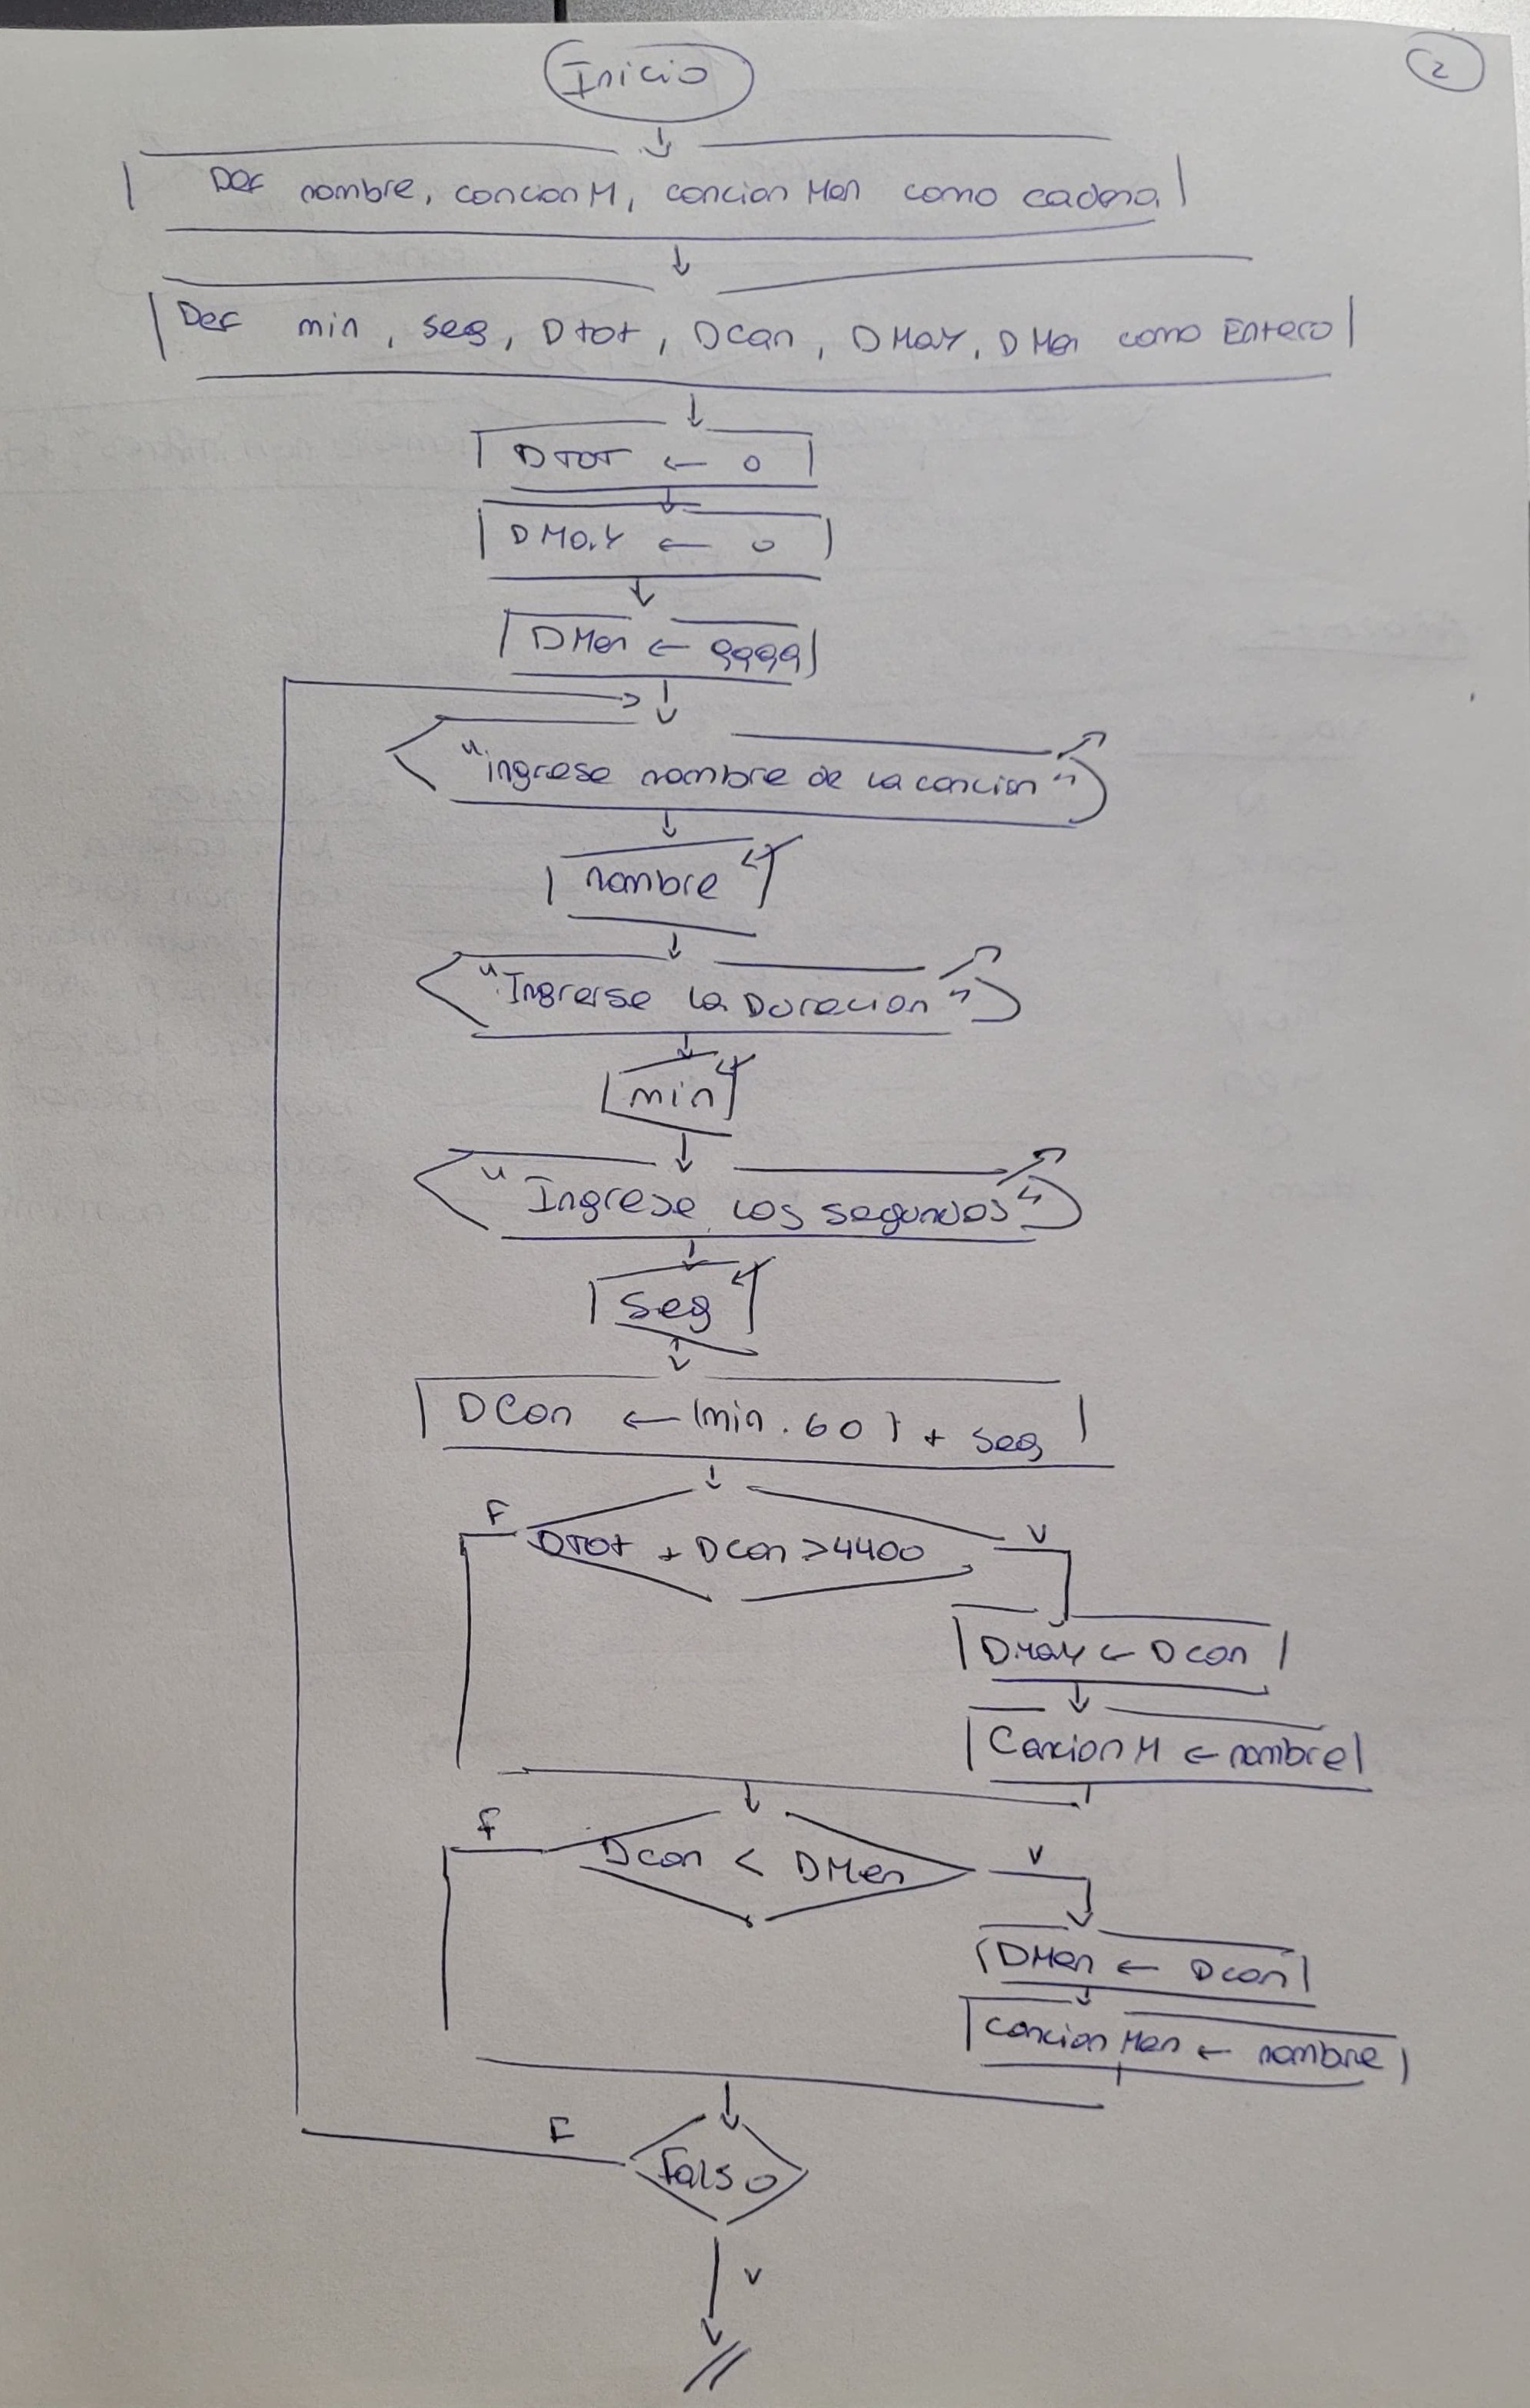 Inicio
2
Def nombre, cancionM, cancion Men como cadena
Def min, seg, Dtot, Dcan, DMay, DMen como Entero
DTOT ← 0
DMay ← 0
DMen ← 9999
"ingrese nombre de la cancion"
nombre
"Ingrerse la Duracion"
min
"Ingrese los segundos"
seg
DCan ← (min . 60) + seg
F DTot + Dcan > 4400 V
DMay ← Dcan
Cancion M ← nombre
F Dcan < DMen V
DMen ← Dcan
cancion Men ← nombre
F
Falso
V